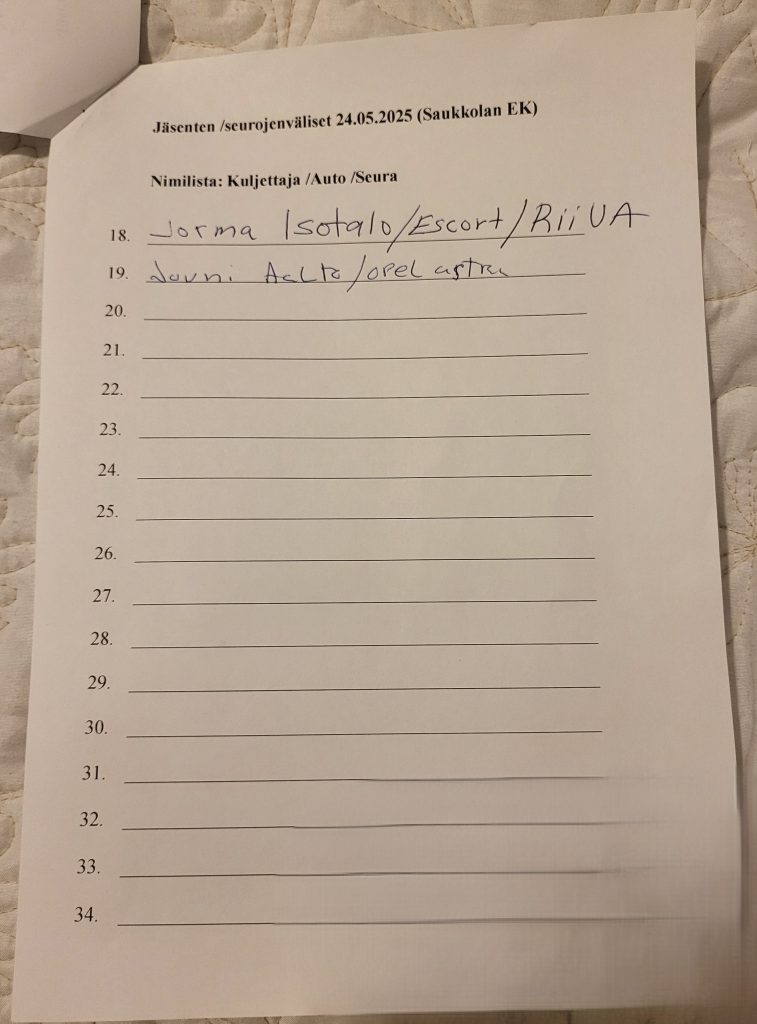 Jäsenten /seurojenväliset 24.05.2025 (Saukkolan EK)
Nimilista: Kuljettaja /Auto /Seura
18. Jorma Isotalo/Escort/RiiUA
19. Jouni Aalto/opel astra
20.
21.
22.
23.
24.
25.
26.
27.
28.
29.
30.
31.
32.
33.
34.